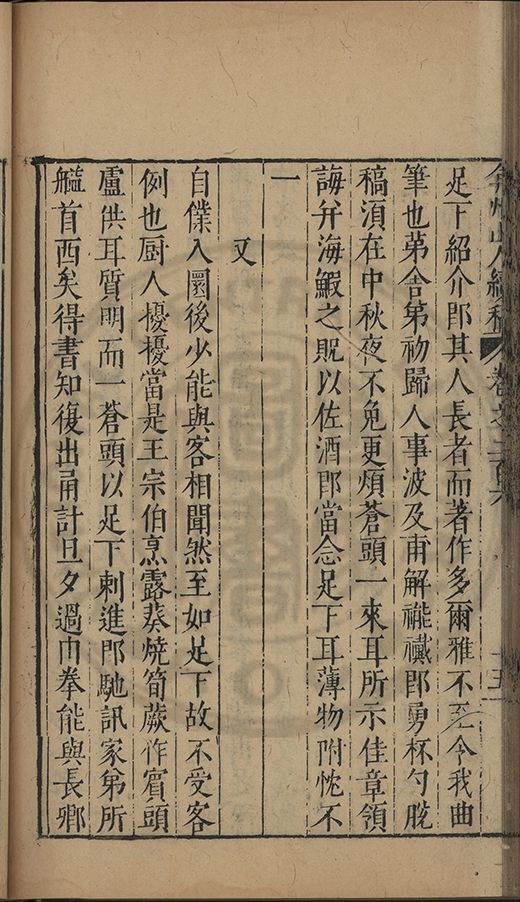 弇州山人續稿 卷之二百六 十五
足下紹介卽其人長者而著作多爾雅不至令我曲
筆也弟舍弟初歸人事波及甫解褦襶卽勇杯勺脫
稿須在中秋夜不免更煩蒼頭一來耳所示佳章領
誨并海鰕之貺以佐酒卽當念足下耳薄物附忱不
一
又
自僕入園後少能與客相聞然至如足下故不受客
例也厨人擾擾當是王宗伯烹露葵燒筍蕨作賓頭
盧供耳質明而一蒼頭以足下刺進卽馳訊家弟所
艗首西矣得書知復出甬計旦夕過巾拳能與長鄉